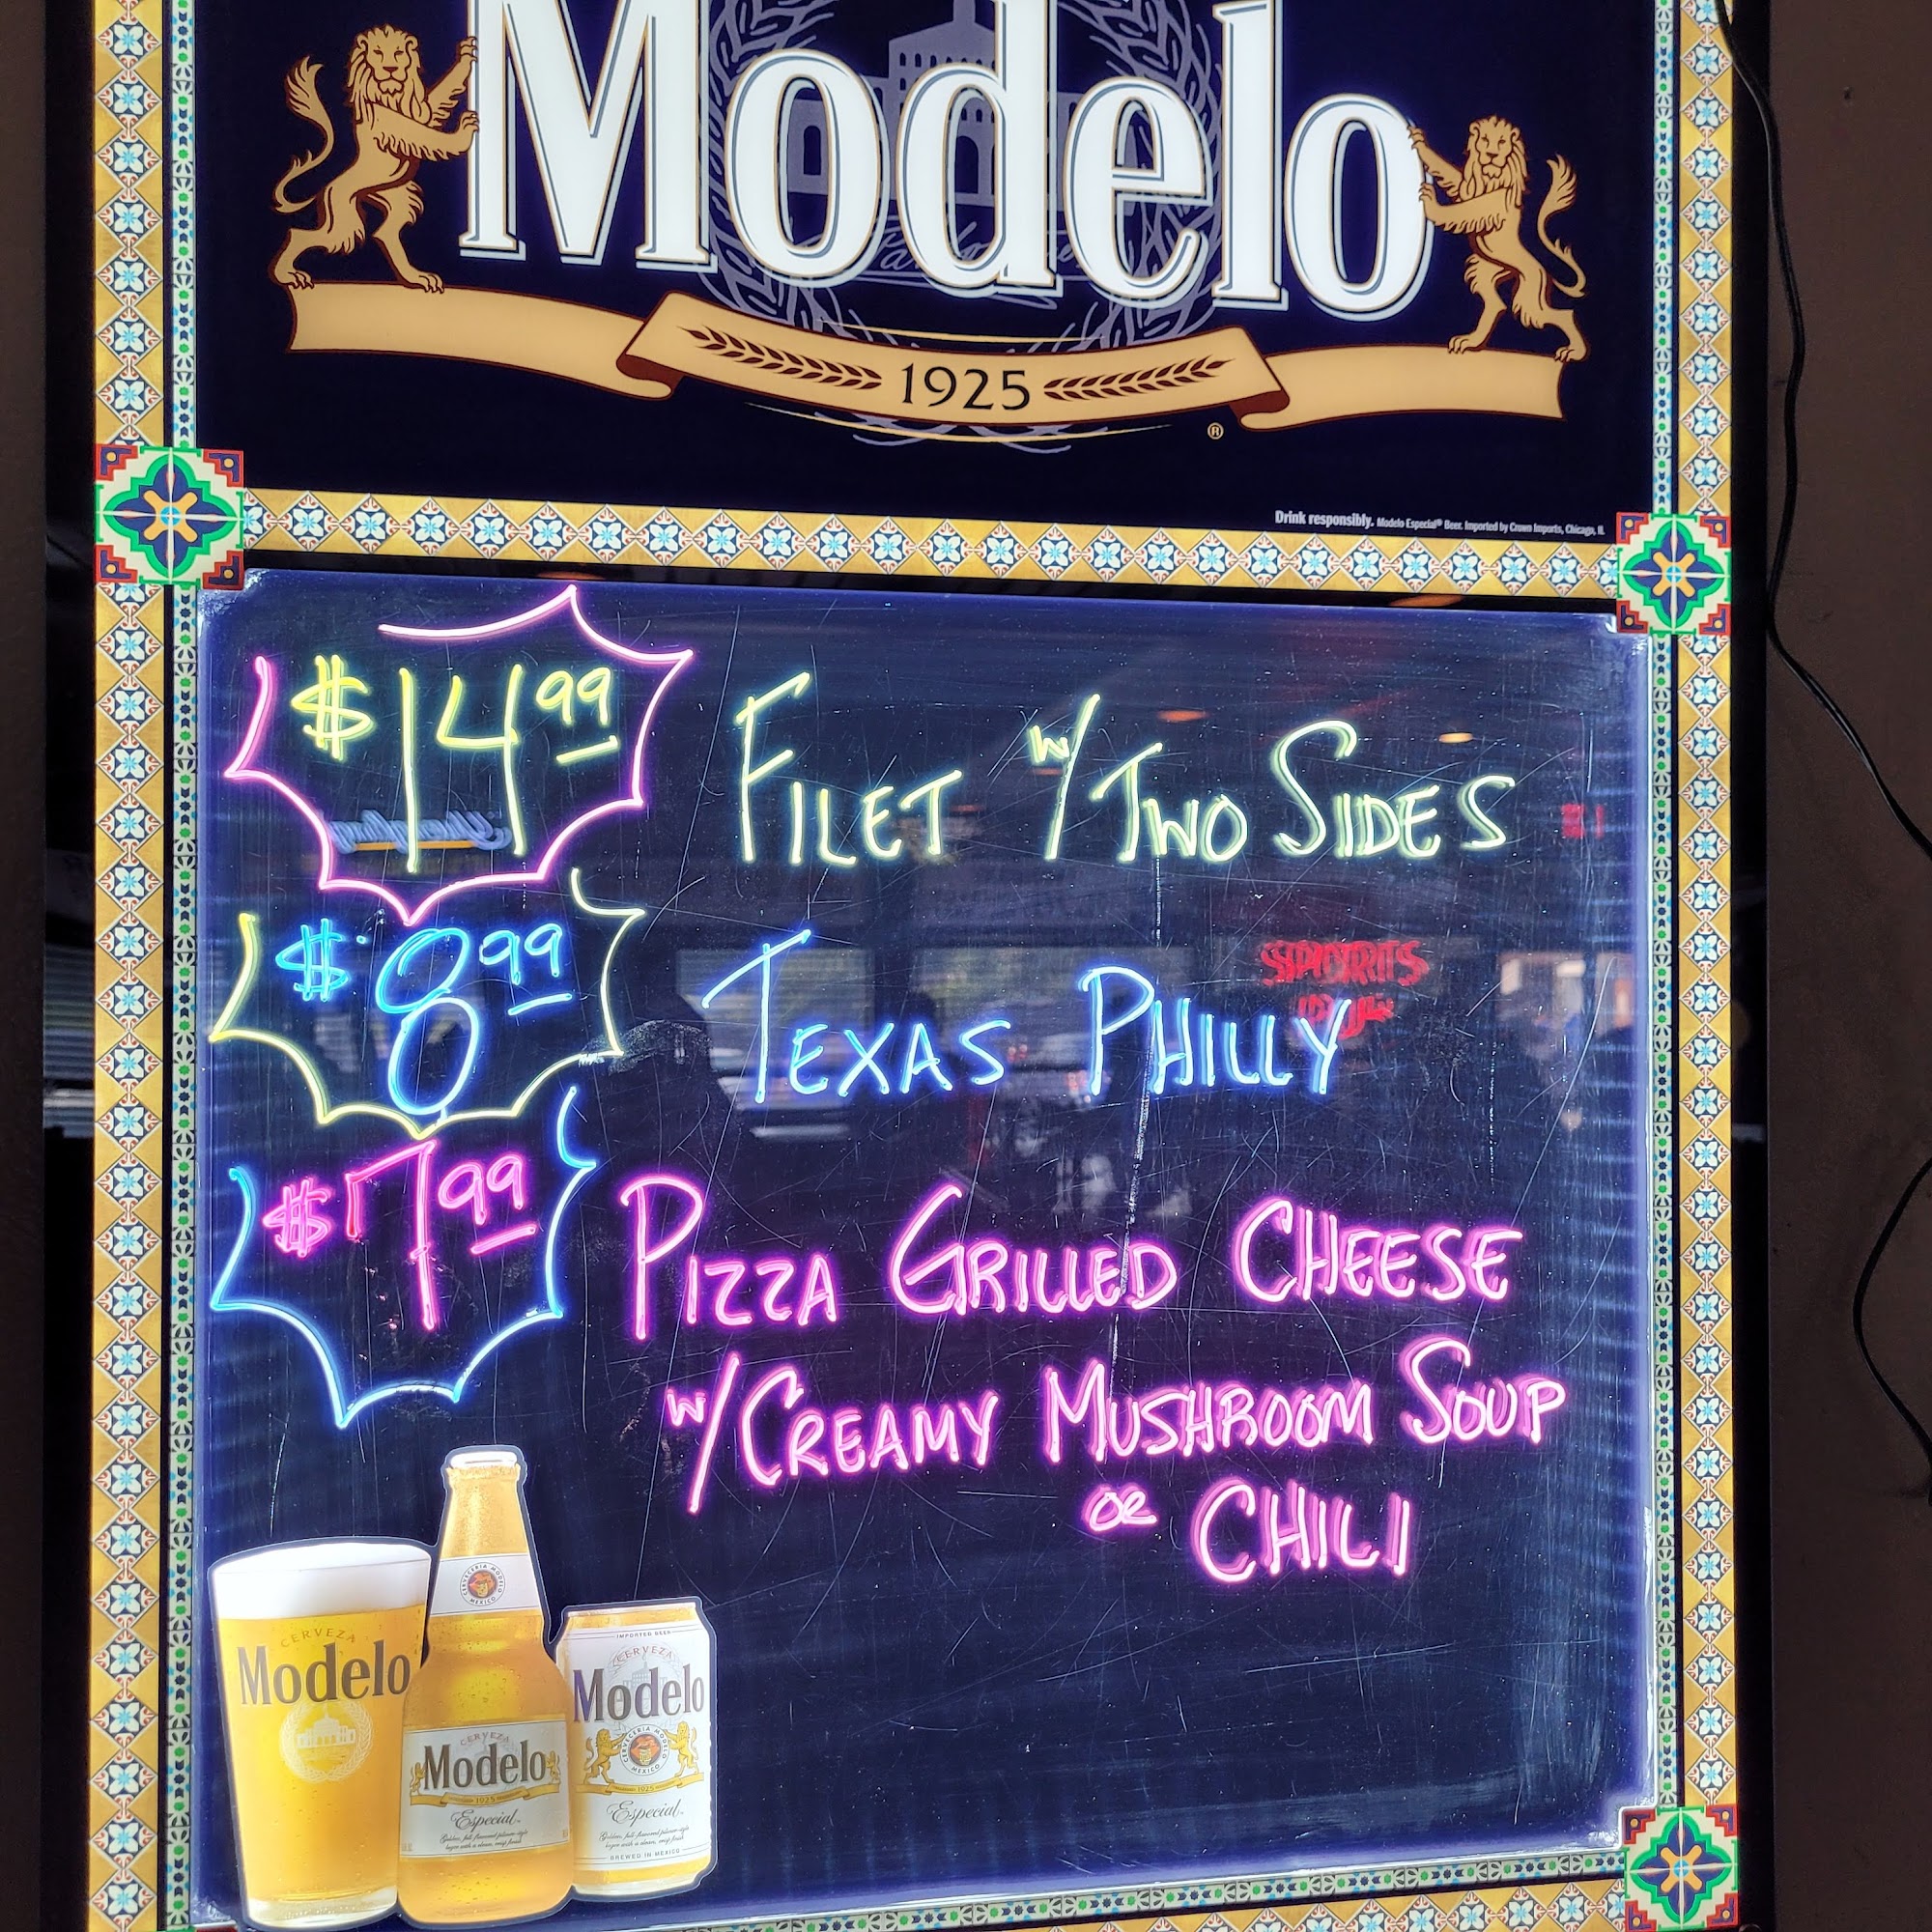 Modelo
1925
®
Drink responsibly. Modelo Especial® Beer. Imported by Crown Imports, Chicago, IL
$14 99 FILET w/ TWO SIDES
$8 99 TEXAS PHILLY
SPORTS
$7 99 PIZZA GRILLED CHEESE
w/ CREAMY MUSHROOM SOUP
OR CHILI
CERVEZA
Modelo
CERVECERIA MODELO
MEXICO
CERVEZA
Modelo
1925
Especial
IMPORTED BEER
CERVEZA
Modelo
CERVECERIA MODELO
MEXICO
1925
Especial
BREWED IN MEXICO